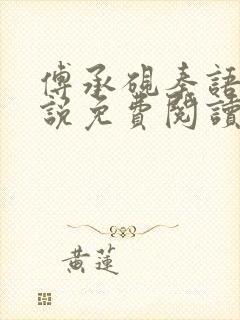 傅承硯秦語
說免費閱讀
黃蓮